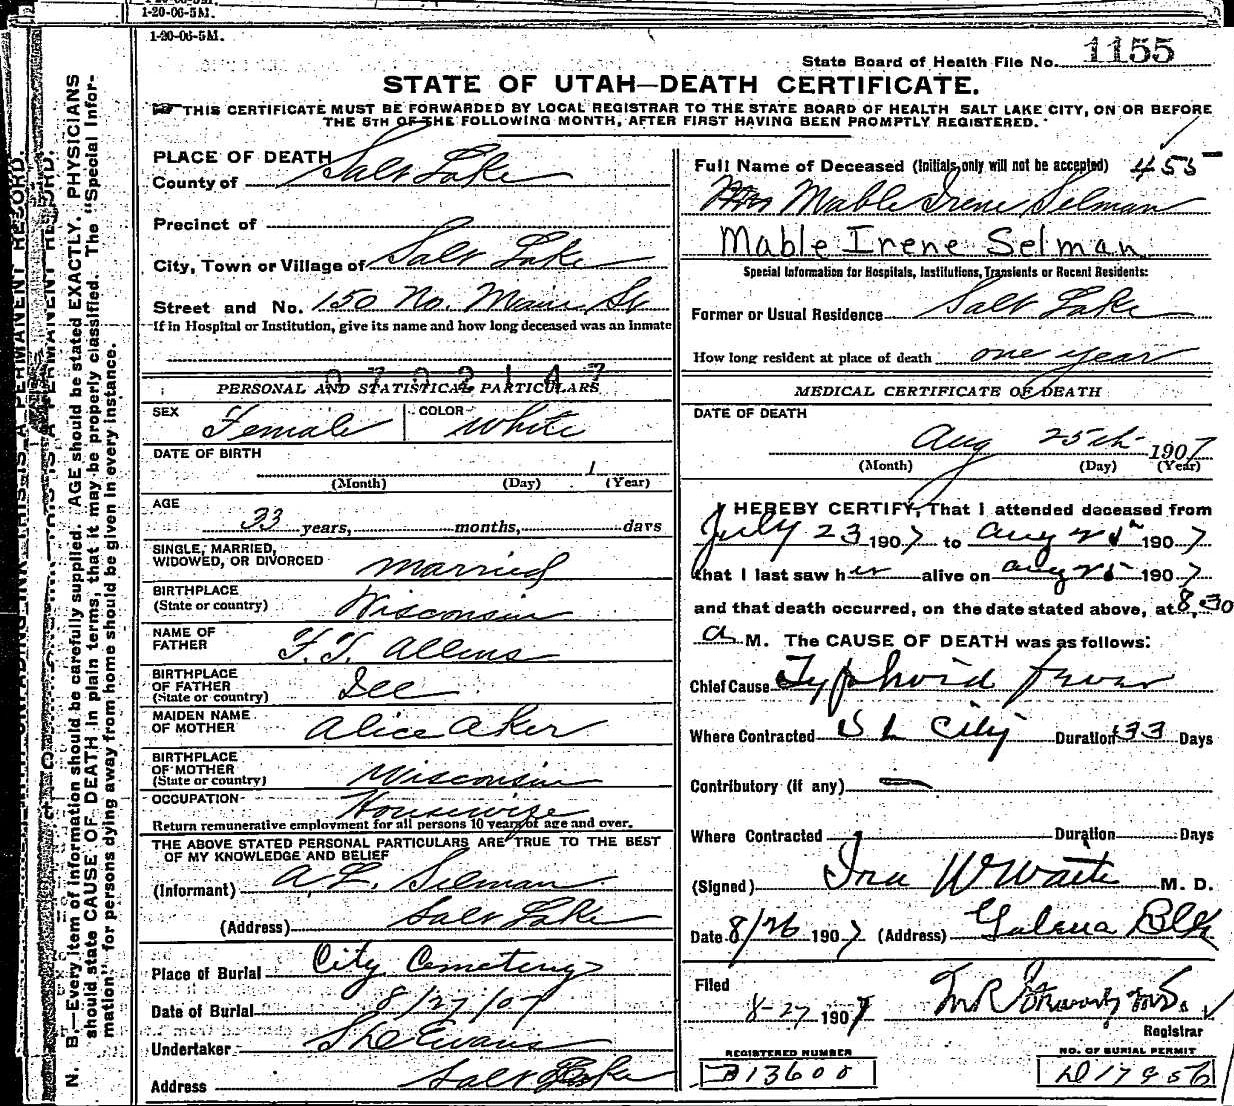 1-20-06-5M.
1-20-06-5M.
State Board of Health File No. 1155
STATE OF UTAH—DEATH CERTIFICATE.
THIS CERTIFICATE MUST BE FORWARDED BY LOCAL REGISTRAR TO THE STATE BOARD OF HEALTH SALT LAKE CITY, ON OR BEFORE
THE 5TH OF THE FOLLOWING MONTH, AFTER FIRST HAVING BEEN PROMPTLY REGISTERED.
N. B.—Every item of information should be carefully supplied. AGE should be stated EXACTLY. PHYSICIANS
should state CAUSE OF DEATH in plain terms, that it may be properly classified. The "Special Infor-
mation" for persons dying away from home should be given in every instance.
PLACE OF DEATH
County of Salt Lake
Precinct of
City, Town or Village of Salt Lake
Street and No. 150 No. Main St
If in Hospital or Institution, give its name and how long deceased was an Inmate
PERSONAL AND STATISTICAL PARTICULARS
SEX Female COLOR White
DATE OF BIRTH
1
(Month) (Day) (Year)
AGE
33 years, months, days
SINGLE, MARRIED,
WIDOWED, OR DIVORCED Married
BIRTHPLACE
(State or country) Wisconsin
NAME OF
FATHER F. T. Allens
BIRTHPLACE
OF FATHER
(State or country)
MAIDEN NAME
OF MOTHER Alice Aker
BIRTHPLACE
OF MOTHER
(State or country) Wisconsin
OCCUPATION Housewife
Return remunerative employment for all persons 10 years of age and over.
THE ABOVE STATED PERSONAL PARTICULARS ARE TRUE TO THE BEST
OF MY KNOWLEDGE AND BELIEF
(Informant) A. L. Selman
(Address) Salt Lake
Place of Burial City Cemetery
Date of Burial 8/27/07
Undertaker Evans
Address Salt Lake
Full Name of Deceased (Initials only will not be accepted) 455
Mrs Mable Irene Selman
Mable Irene Selman
Special Information for Hospitals, Institutions, Transients or Recent Residents:
Former or Usual Residence Salt Lake
How long resident at place of death one year
MEDICAL CERTIFICATE OF DEATH
DATE OF DEATH
Aug 25th 1907
(Month) (Day) (Year)
I HEREBY CERTIFY, That I attended deceased from
July 23 1907 to Aug 25th 1907
that I last saw her alive on Aug 25 1907
and that death occurred, on the date stated above, at 8,30
a M. The CAUSE OF DEATH was as follows:
Chief Cause Typhoid fever
Where Contracted S L City Duration 33 Days
Contributory (if any) —
Where Contracted Duration Days
(Signed) Ira W Waite M. D.
Date 8/26 1907 (Address) Galena Blk
Filed
8-27 1907
Registrar
REGISTERED NUMBER
B13600
NO. OF BURIAL PERMIT
D17956